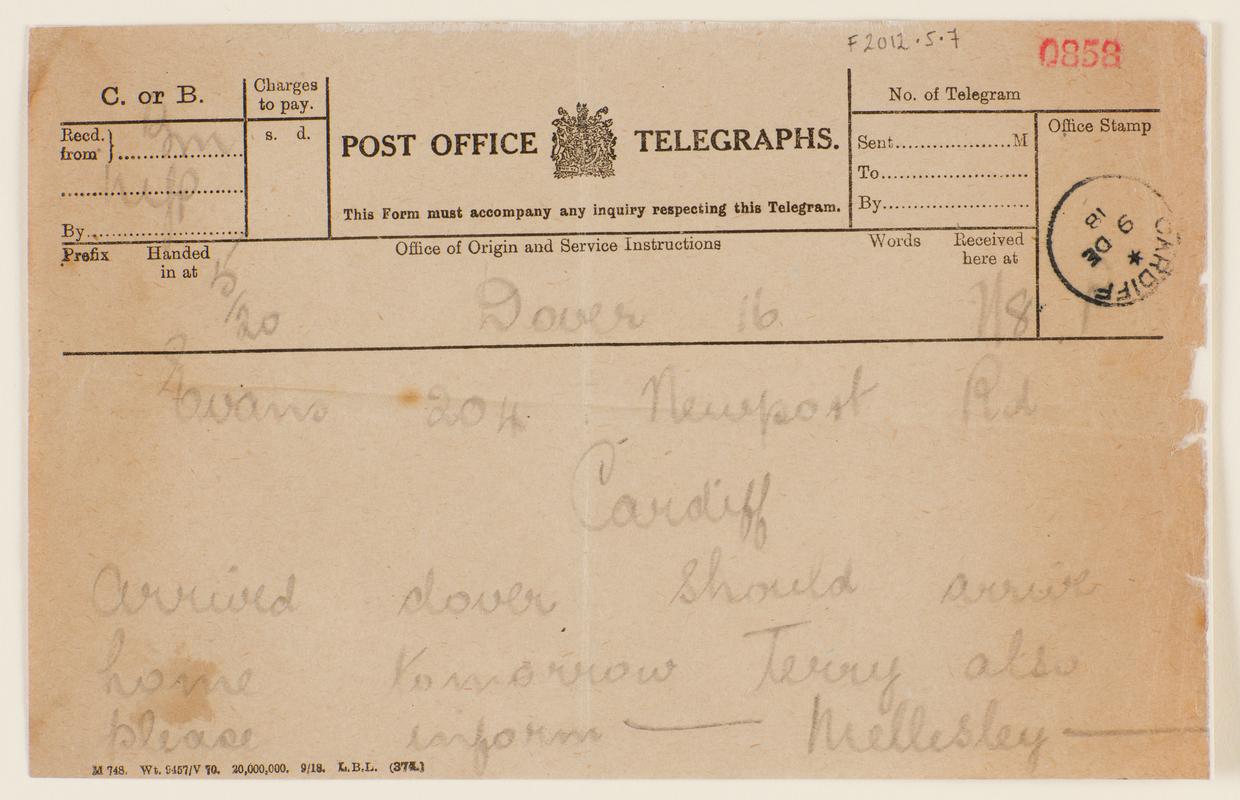 F2012.5.7
0858
C. or B.
Charges
to pay.
s. d.
Recd.
from
By
POST OFFICE TELEGRAPHS.
This Form must accompany any inquiry respecting this Telegram.
No. of Telegram
Sent M
To
By
Office Stamp
CARDIFF
9 DE
18
Prefix Handed
in at
Office of Origin and Service Instructions
Words Received
here at
5/20 Dover 16
Evans 204 Newport Rd
Cardiff
Arrived dover should arrive
home tomorrow Terry also
please inform — Mellesley —
M 748. Wt. 9457/V 70. 20,000,000. 9/18. L.B.L. (374.)